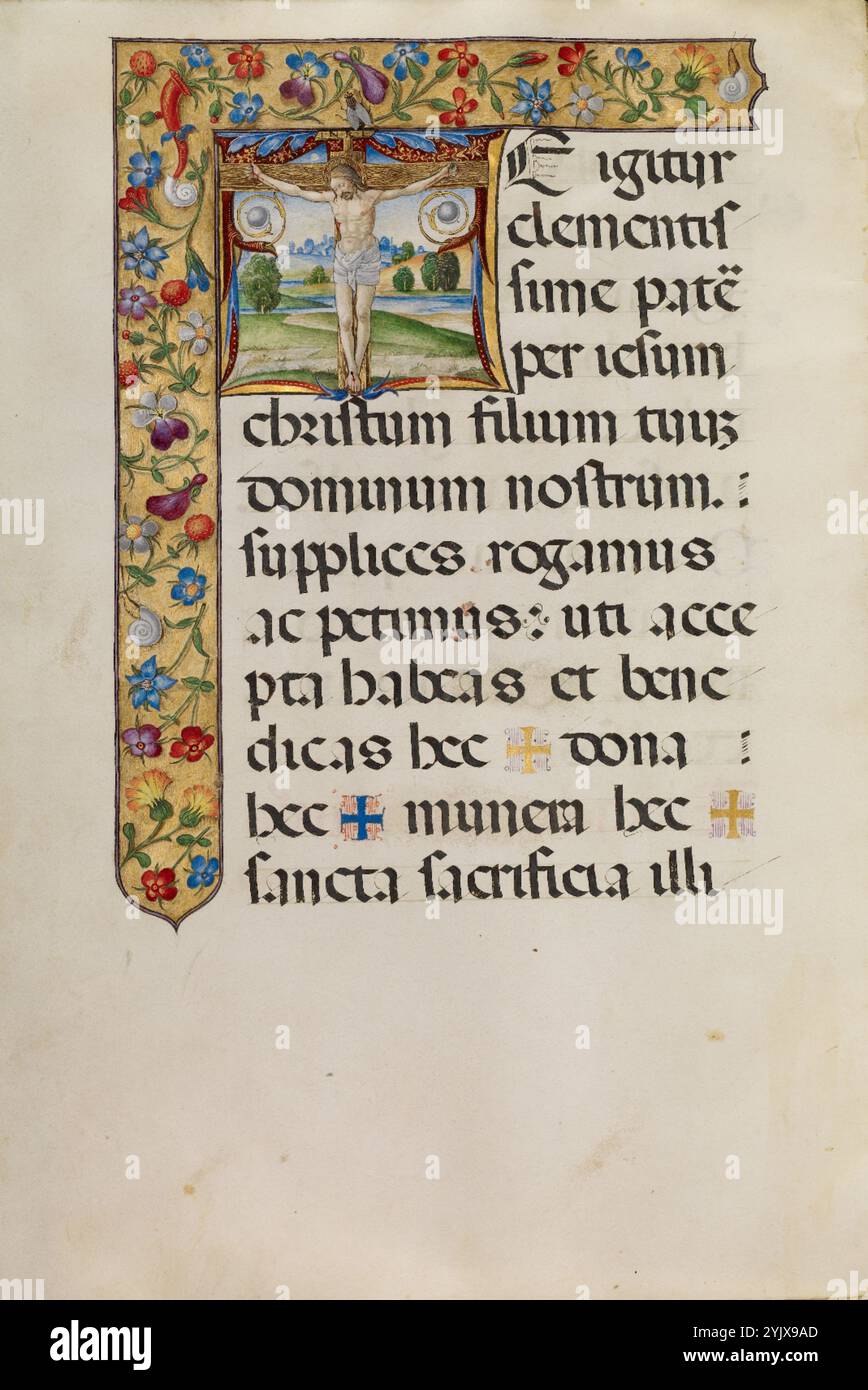 INRI
E igitur
clementis
sime patē
per iesum
christum filium tuuʒ
dominum nostrum.
supplices rogamus
ac petimus: uti acce
pta habeas et bene
dicas hec ✠ dona
hec ✠ munera hec ✠
sancta sacrificia illi
alamy
Image ID: 2YJX9AD
www.alamy.com